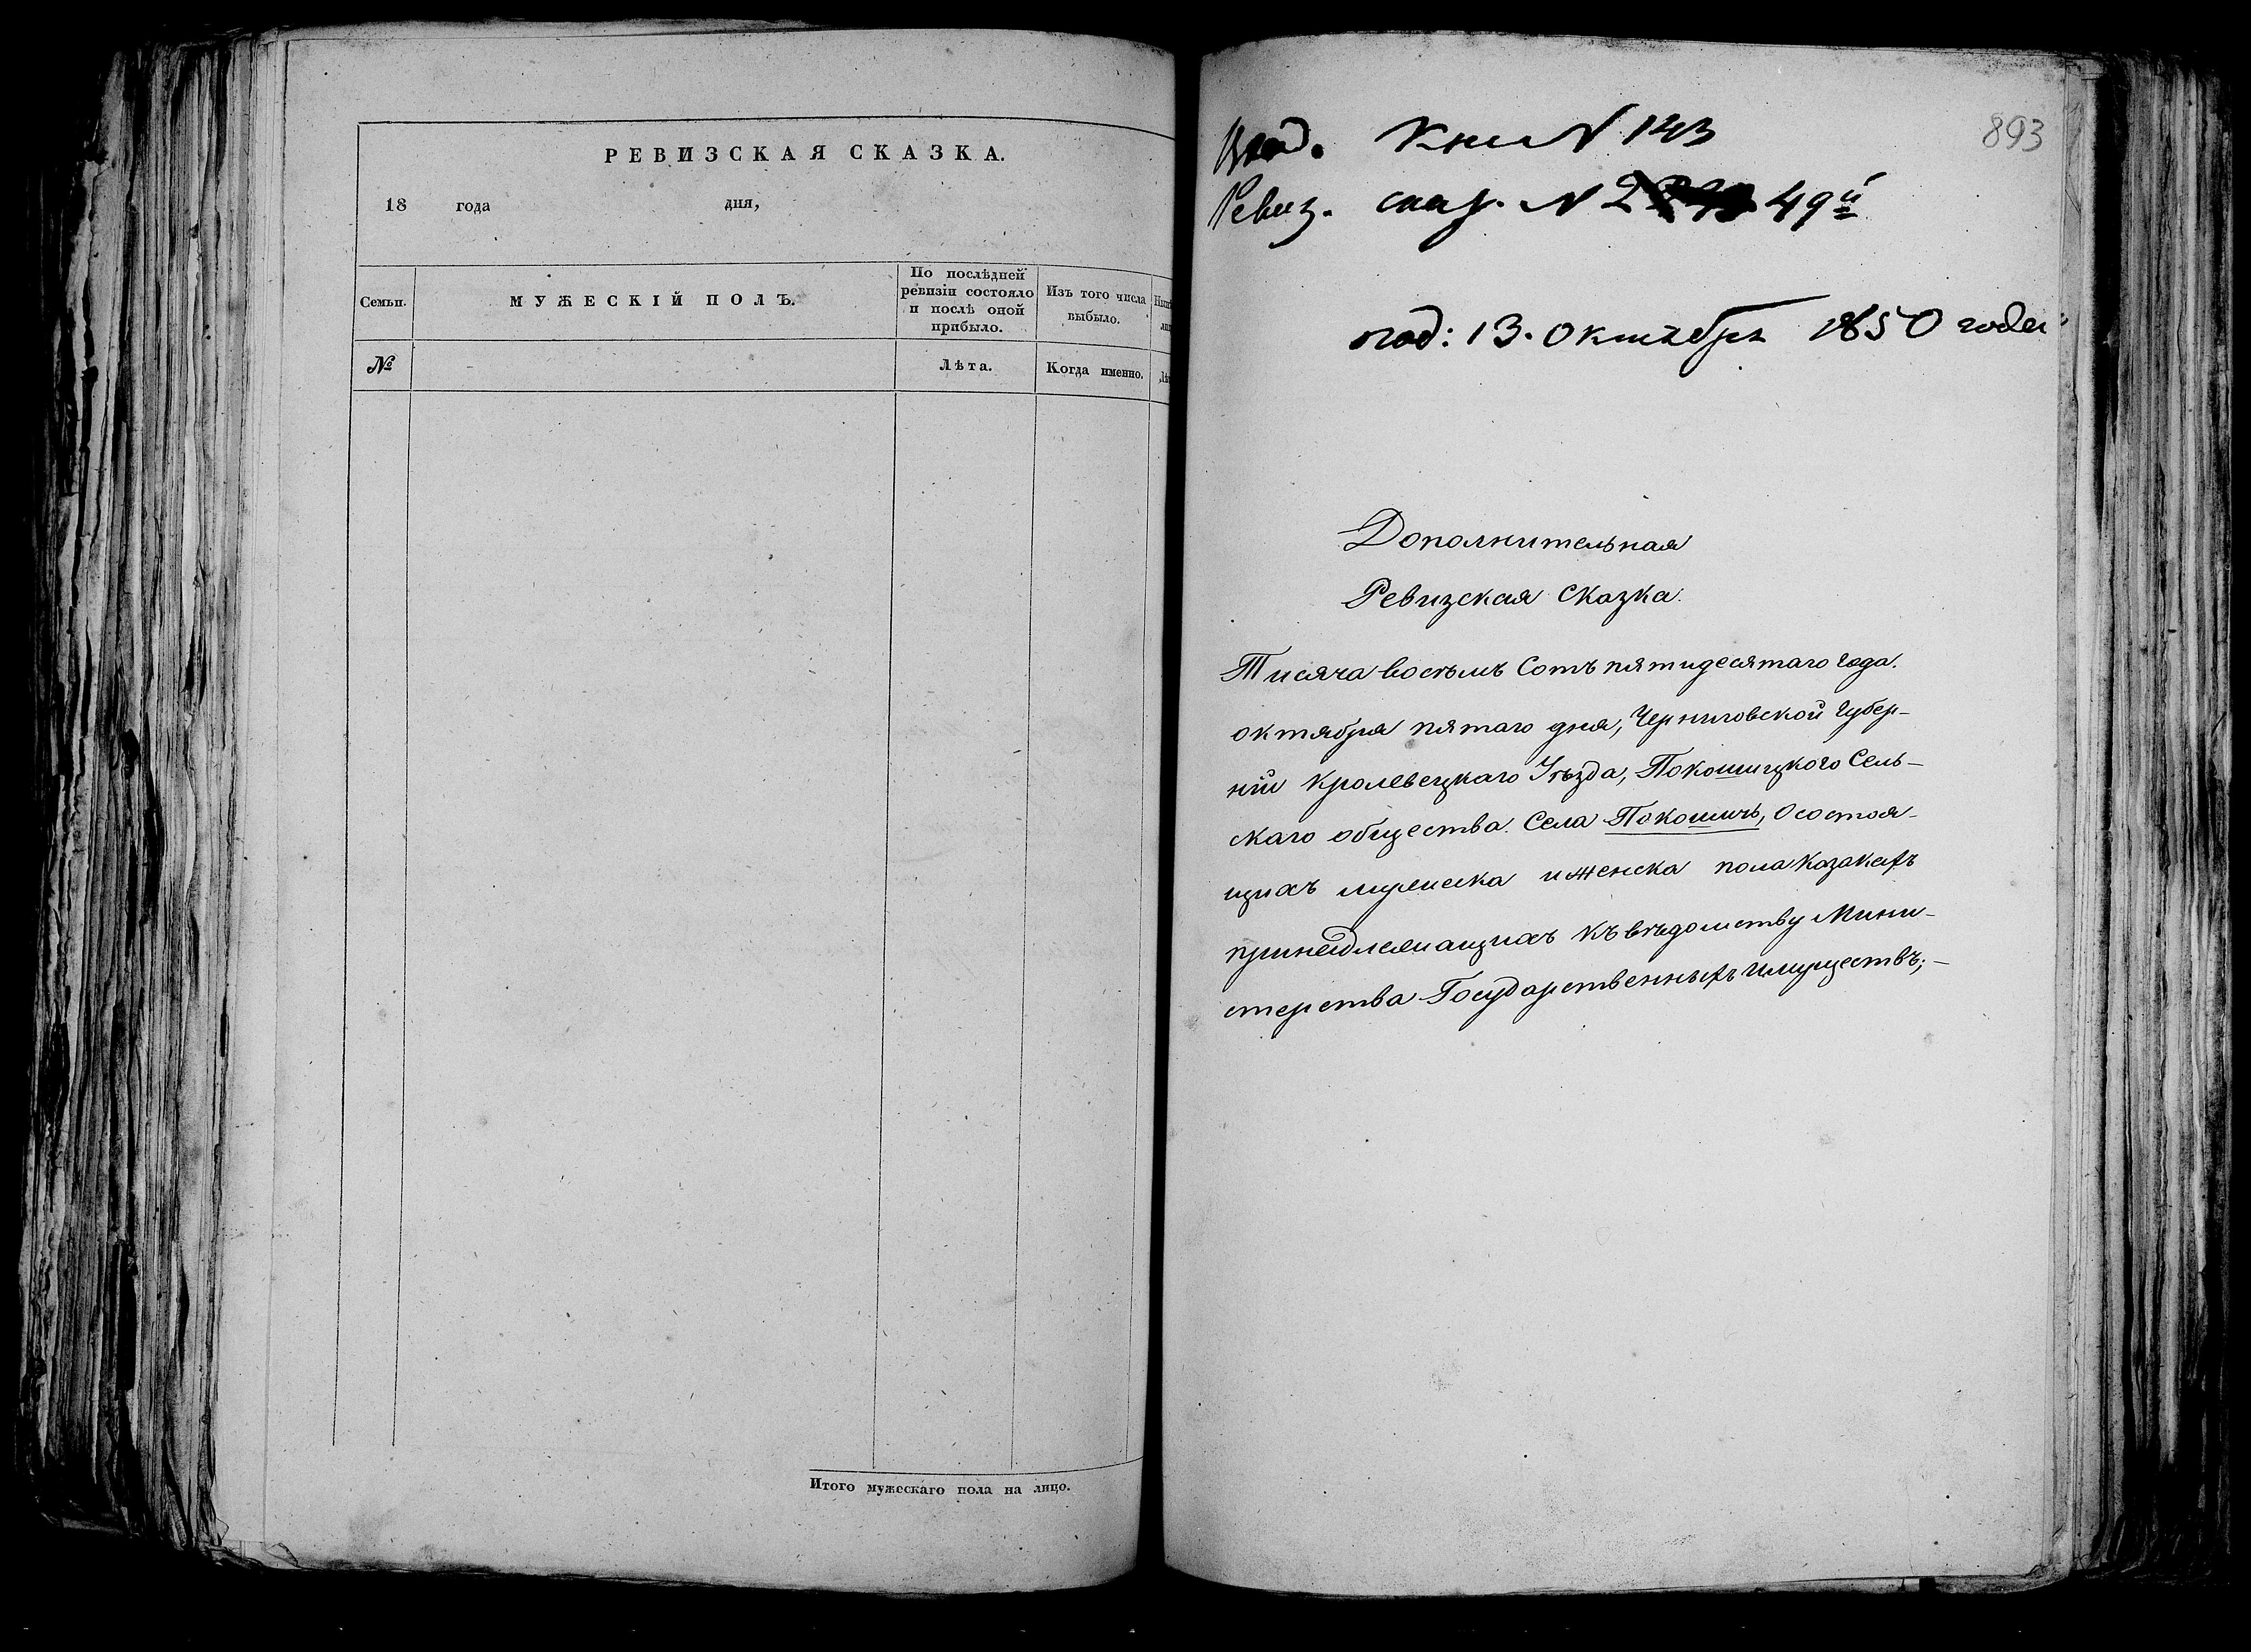 РЕВИЗСКАЯ СКАЗКА.
18 года дня,
Семьи.
МУЖЕСКІЙ ПОЛЪ.
По послѣдней
ревизіи состояло
и послѣ оной
прибыло.
Изъ того числа
выбыло.
№
Лѣта.
Когда именно.
Итого мужескаго пола на лицо.
893
Кни N 143
Ревиз. сказ. N 49й
под: 13. Октября 1850 года
Дополнительная
Ревизская Сказка.
Тисяча восѣмъ Сотъ пятидесятаго года.
октября пятаго дня, Черниговской Губер-
ніи Кролевецкаго Уѣзда, Покошицкого Сель-
скаго общества. Села Покошичь, О состоя-
щихъ мужеска и женска пола Козакахъ
принадлежащихъ къ вѣдомству Мини-
стерства Государственныхъ имуществъ;-